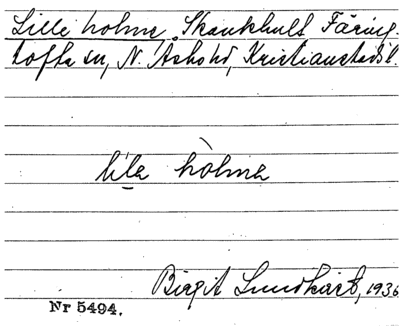 Lille holme, Skankhult, Färing-
tofta sn, N. Åsbo hd, Kristianstads l.
lila hòlma
Birgit Lundkvist, 1936
Nr 5494.